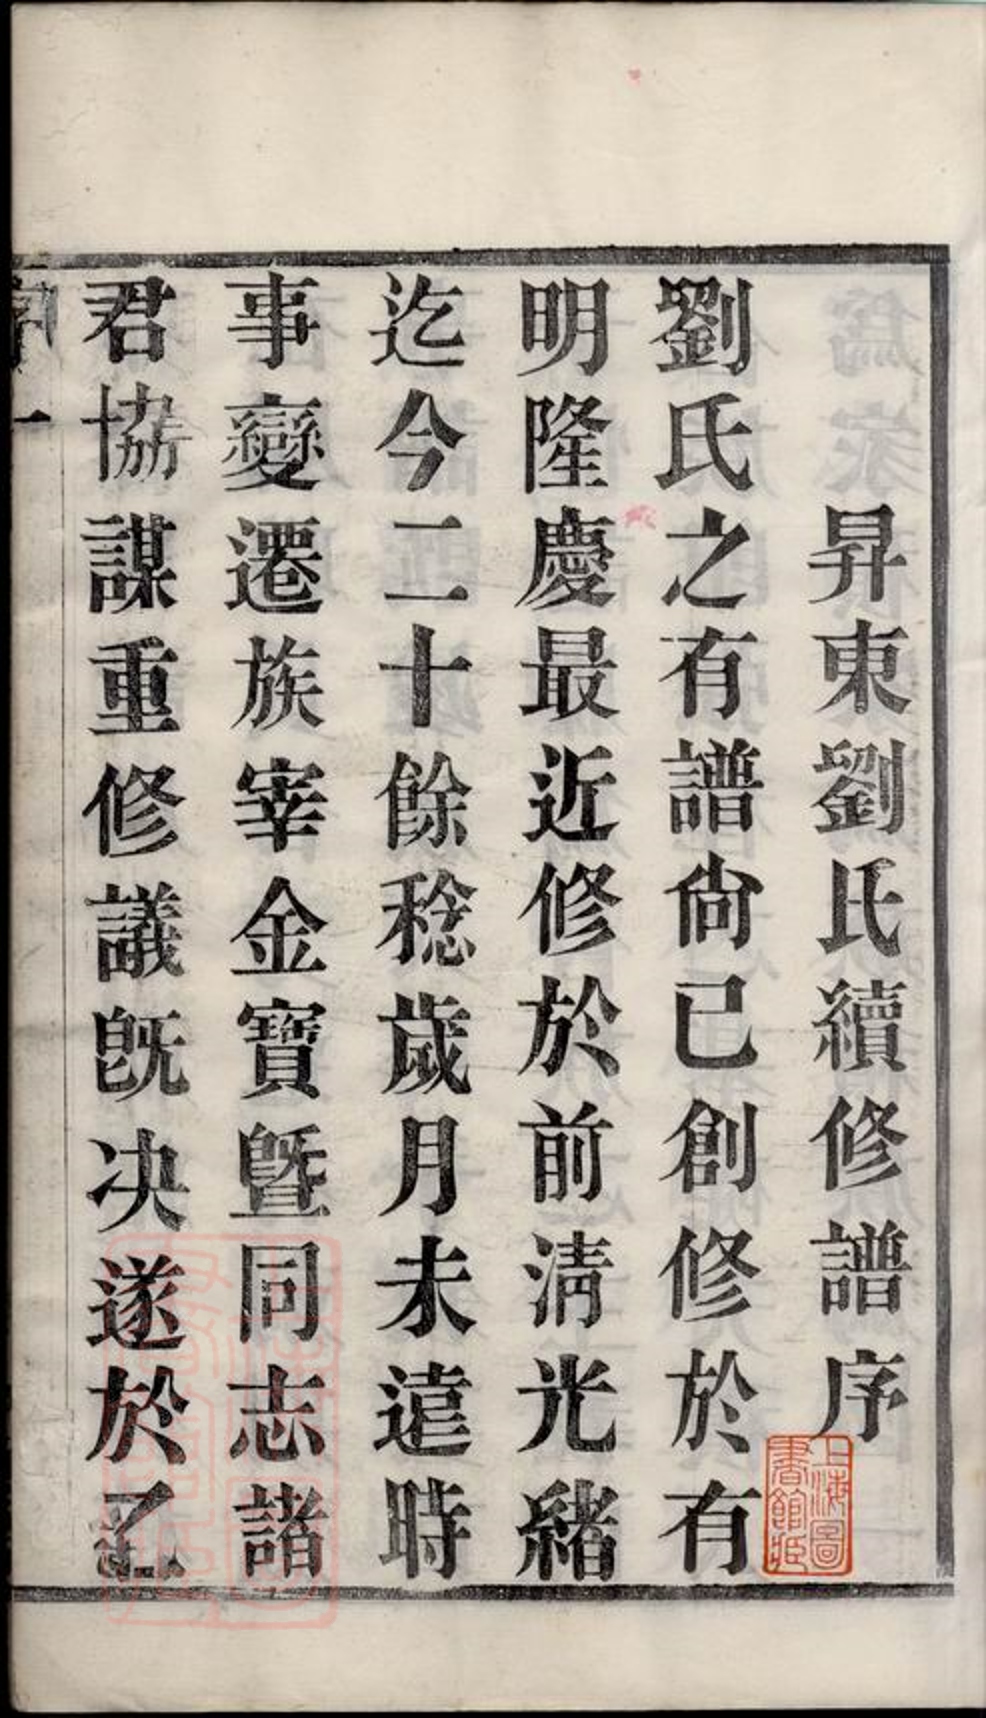 昇東劉氏續修譜序
劉氏之有譜尙已創修於有
明隆慶最近修於前淸光緒
迄今二十餘稔歲月未遠時
事變遷族宰金寶曁同志諸
君協謀重修議旣决遂於
上海圖書館藏
序 一